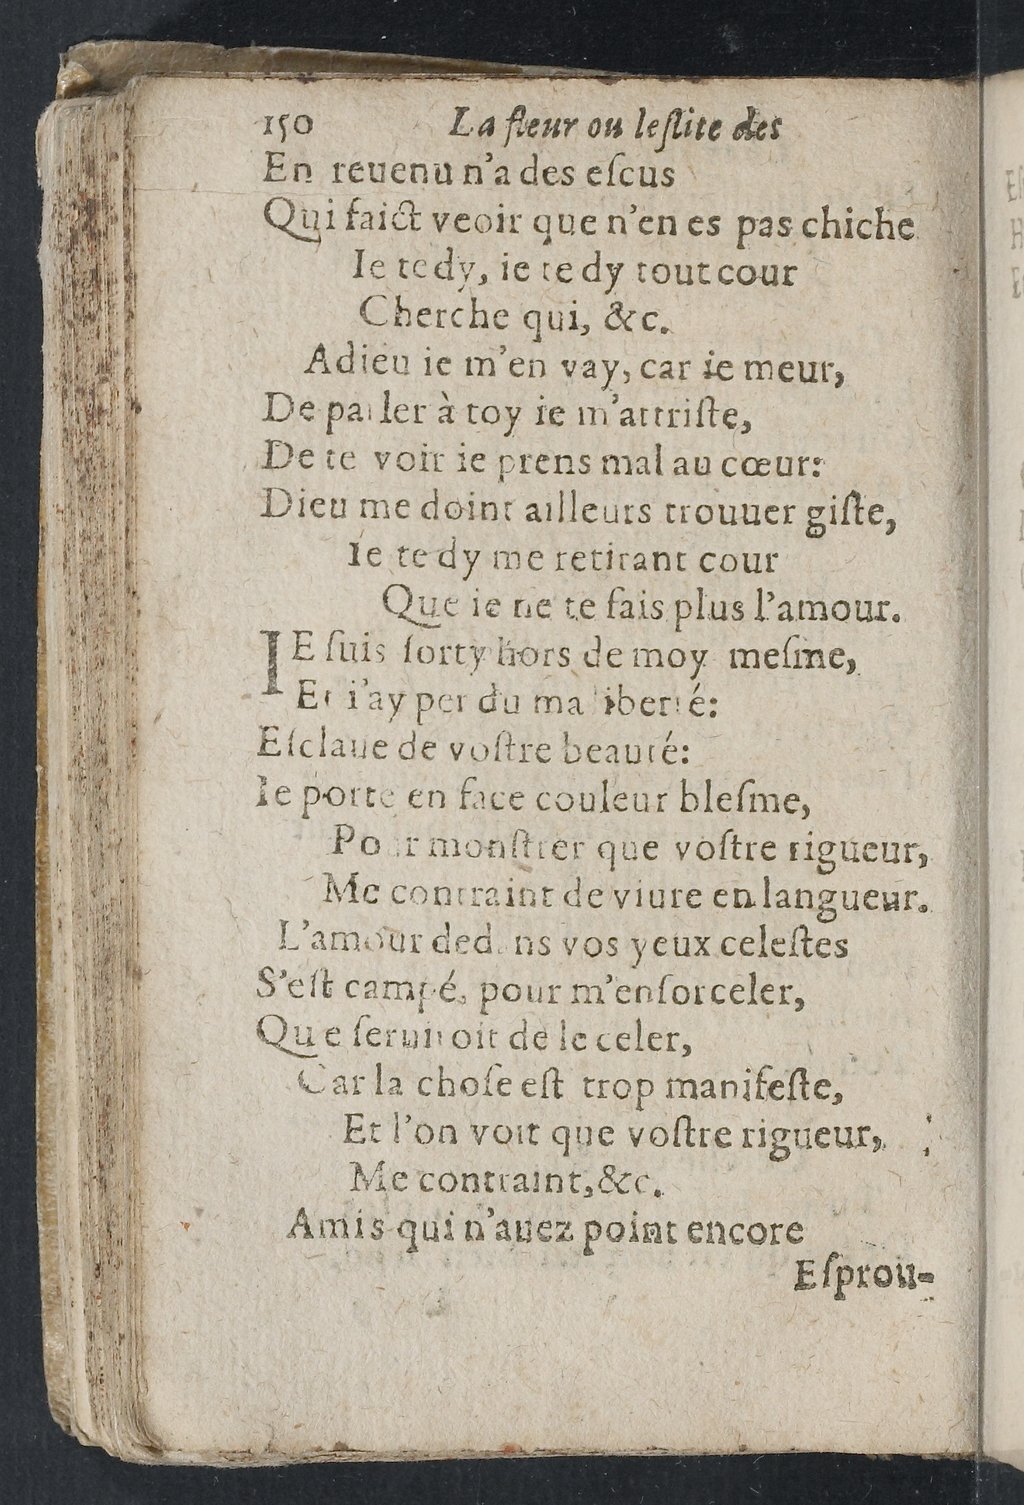 150 La fleur ou leſlite des
En reuenu n'a des eſcus
Qui faict veoir que n'en es pas chiche
Ie te dy, ie te dy tout cour
Cherche qui, &c.
Adieu ie m'en vay, car ie meur,
De parler à toy ie m'attriſte,
De te voir ie prens mal au cœur:
Dieu me doint ailleurs trouuer giſte,
Ie te dy me retirant cour
Que ie ne te fais plus l'amour.
IE ſuis ſorty hors de moy meſme,
Et i'ay perdu ma liberté:
Eſclaue de voſtre beauté:
Ie porte en face couleur bleſme,
Pour monſtrer que voſtre rigueur,
Me contraint de viure en langueur.
L'amour dedans vos yeux celeſtes
S'eſt campé, pour m'enſorceler,
Que ſeruiroit de le celer,
Car la choſe eſt trop manifeſte,
Et l'on voit que voſtre rigueur,
Me contraint, &c.
Amis qui n'auez point encore
Eſprou-